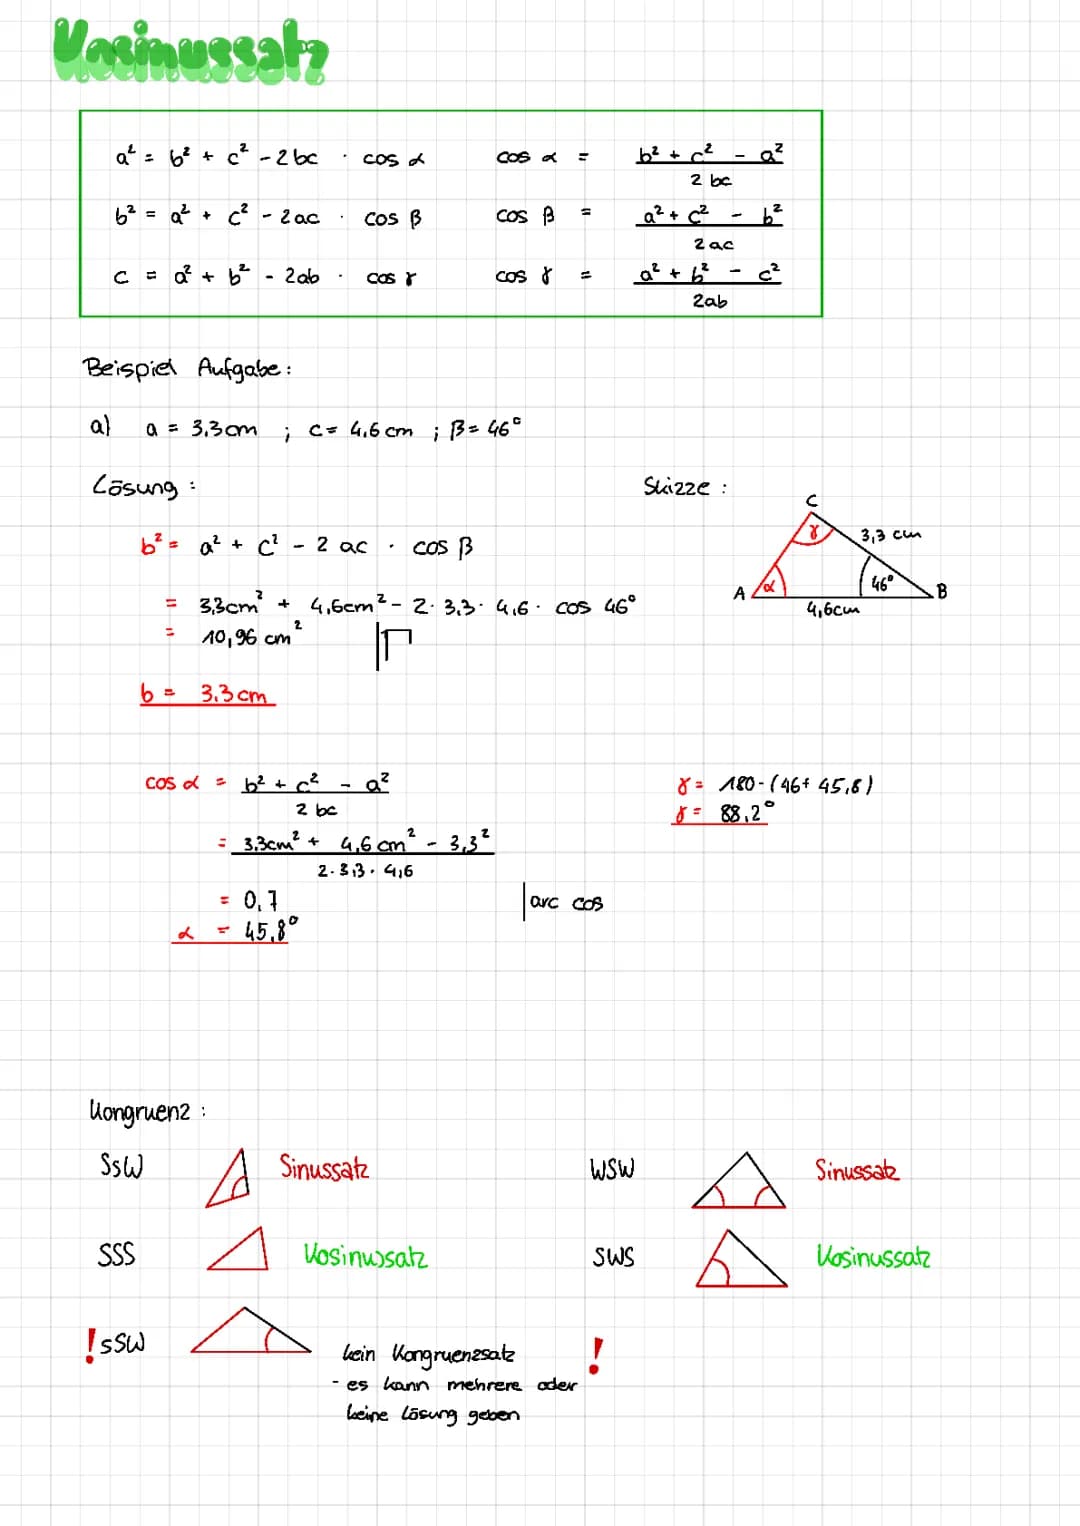 Kosinussatz
a² = b² + c² - 2bc · cos α    cos α = (b² + c² - a²) / 2bc
b² = a² + c² - 2ac · cos β    cos β = (a² + c² - b²) / 2ac
c = a² + b² - 2ab · cos γ    cos γ = (a² + b² - c²) / 2ab
Beispiel Aufgabe:
a) a = 3,3cm ; c = 4,6cm ; β = 46°
Lösung:
b² = a² + c² - 2ac · cos β
= 3,3cm² + 4,6cm² - 2·3,3·4,6· cos 46°
= 10,96 cm² |√
b = 3,3cm
Skizze:
C
γ 3,3 cm
A α 46° B
4,6cm
cos α = (b² + c² - a²) / 2bc
= (3,3cm² + 4,6cm² - 3,3²) / 2·3,3·4,6
= 0,7 |arc cos
α = 45,8°
γ = 180-(46+45,8)
γ = 88,2°
Kongruenz:
SsW Sinussatz
WSW Sinussatz
SSS Kosinussatz
SWS Kosinussatz
! sSW kein Kongruenzsatz !
- es kann mehrere oder
keine Lösung geben